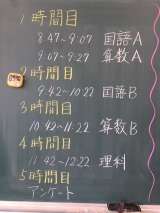 1時間目
8:47~9:07 国語A
9:07~9:27 算数A
2時間目
9:42~10:22 国語B
3時間目
10:42~11:22 算数B
4時間目
11:42~12:22 理科
5時間目
アンケート